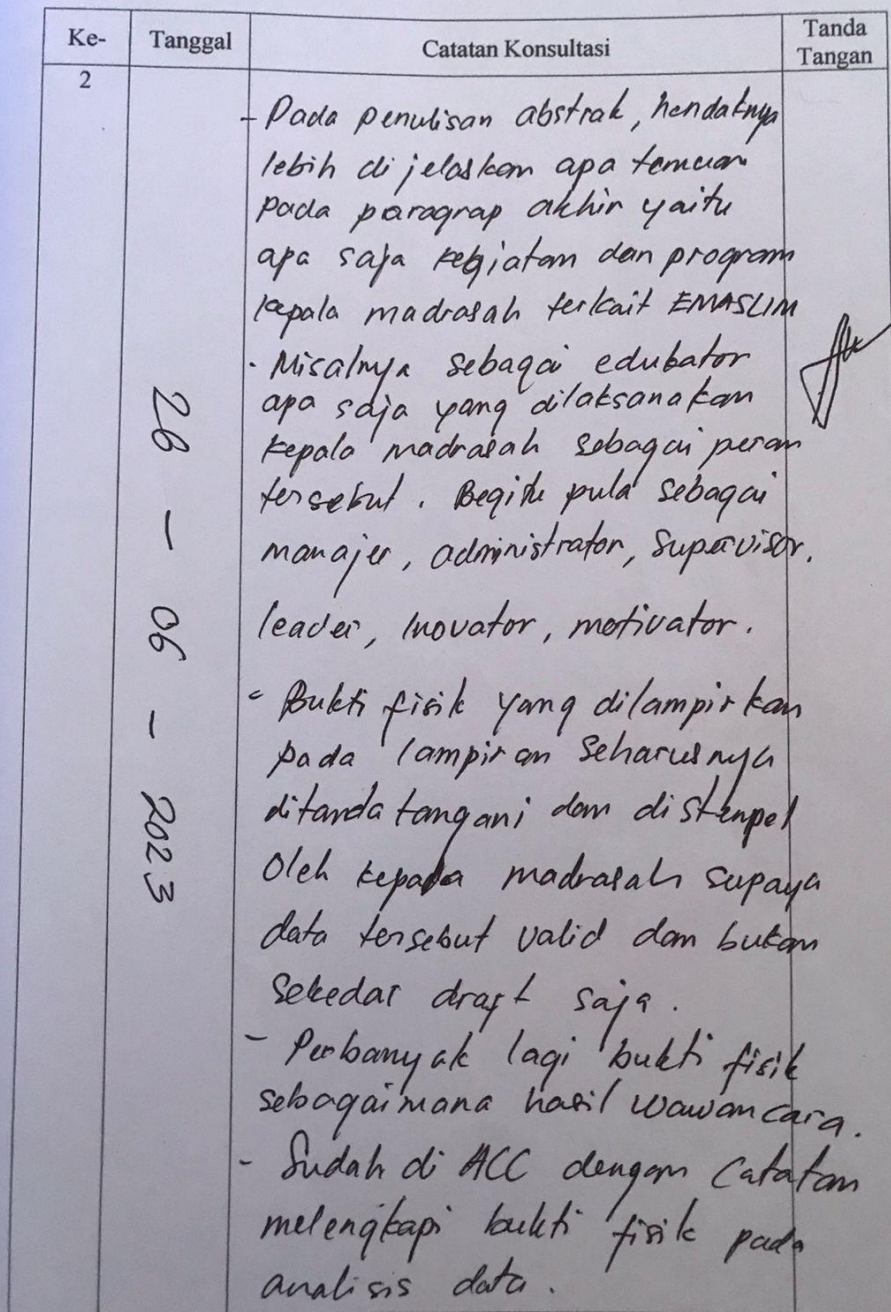 Ke-
Tanggal
Catatan Konsultasi
Tanda
Tangan
2
26 - 06 - 2023
- Pada penulisan abstrak, hendaknya
lebih di jelaskan apa temuan
pada paragrap akhir yaitu
apa saja kegiatan dan program
kepala madrasah terkait EMASLIM
- Misalnya sebagai edukator
apa saja yang dilaksanakan
kepala madrasah sebagai peran
tersebut. Begitu pula sebagai
manajer, administrator, Supervisor.
leader, Inovator, motivator.
- Bukti fisik yang dilampirkan
pada lampiran seharusnya
ditanda tangani dan di stempel
Oleh kepala madrasah supaya
data tersebut valid dan bukan
sekedar draft saja.
- Perbanyak lagi bukti fisik
sebagaimana hasil wawancara.
- Sudah di ACC dengan Catatan
melengkapi bukti fisik pada
analisis data.